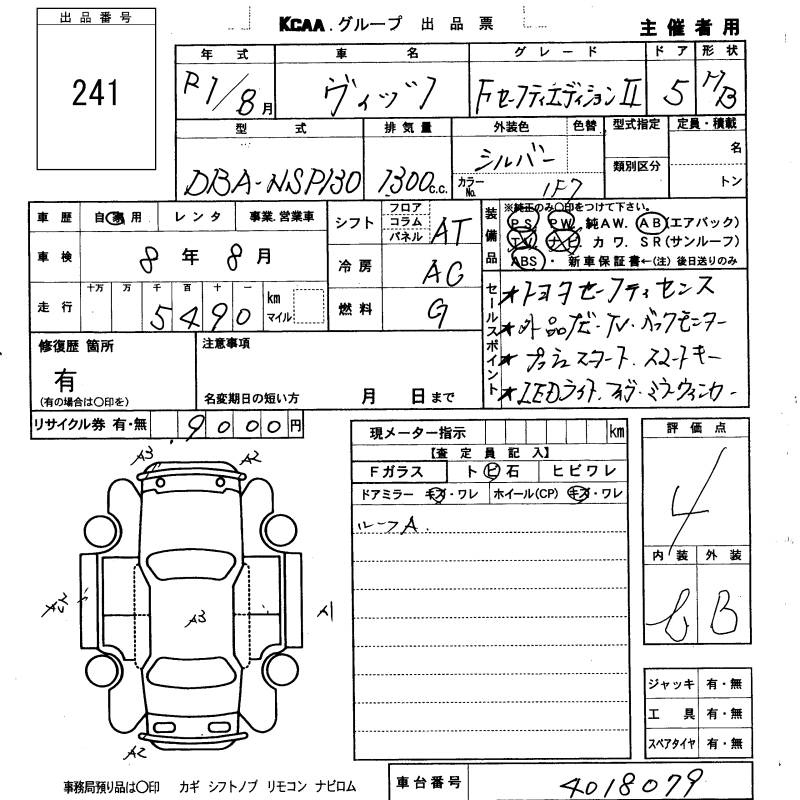 出品番号
241
KCAA.グループ 出品票
主催者用
年式 車名 グレード ドア 形状
R1/8月 ヴィッツ FセーフティエディションII 5 HB
型式 排気量 外装色 色替 型式指定 定員・積載
DBA-NSP130 1300c.c. シルバー カラーNo. 1F7 類別区分 名 トン
車歴 自家用 レンタ 事業.営業車
車検 8年8月
走行 十万 万 千 百 十 一 km マイル
5490
シフト フロア コラム パネル AT
冷房 AC
燃料 G
装備品 ※純正のみ○印をつけて下さい。
PS PW 純AW. AB(エアバック)
TV ナビ カワ. SR(サンルーフ)
ABS・新車保証書←(注)後日送りのみ
セールスポイント
★トヨタセーフティセンス
★外品ナビ・TV・バックモニター
★プッシュスタート. スマートキー
★LEDライト.
修復歴 箇所
有
(有の場合は○印を)
注意事項
名変期日の短い方 月 日まで
リサイクル券 有・無 9000円
現メーター指示 km
【査定員記入】
Fガラス トビ石 ヒビワレ
ドアミラー キズ・ワレ ホイール(CP) キズ・ワレ
ルーフA.
評価点
4
内装 外装
B
A3 A2
A3
A1
A2
ジャッキ 有・無
工具 有・無
スペアタイヤ 有・無
事務局預り品は○印 カギ シフトノブ リモコン ナビロム
車台番号 4018079